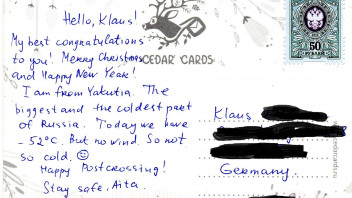 Hello, Klaus!
My best congratulations
to you! Merry Christmas
and Happy New Year!
I am from Yakutia. The
biggest and the coldest part
of Russia. Today we have
-52°C. But no wind. So not
so cold. ☺
Happy Postcrossing!
Stay safe, Aita.
CEDAR CARDS
50
РУБЛЕЙ
Klaus
Germany.